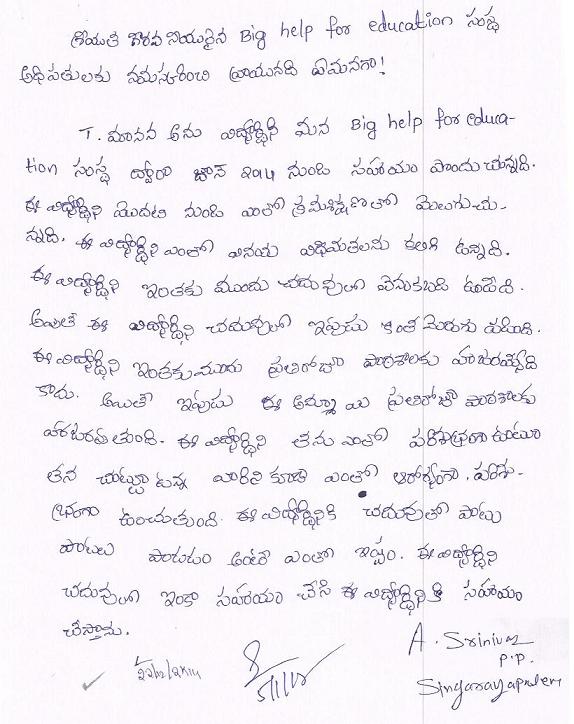 శ్రీయుత గౌరవ నీయులైన Big help for education సంస్థ
అధిపతులకు నమస్కరించి వ్రాయునది ఏమనగా!
T. మానస అను విద్యార్థిని మన Big help for educa-
tion సంస్థ ద్వారా జూన్ 2014 నుండి సహాయం పొందుచున్నది.
ఈ విద్యార్థిని మొదటి నుండి ఎంతో క్రమశిక్షణతో మెలుగుచు-
న్నది. ఈ విద్యార్థిని ఎంతో వినయ విధేయతలను కలిగి ఉన్నది.
ఈ విద్యార్థిని ఇంతకు ముందు చదువులో వెనుకబడి ఉండేది.
అయితే ఈ విద్యార్థిని చదువులో ఇపుడు కొంత మెరుగు పడింది.
ఈ విద్యార్థిని ఇంతకుముందు ప్రతిరోజూ పాఠశాలకు హాజరయ్యేది
కాదు. అయితే ఇపుడు ఈ అమ్మాయి ప్రతిరోజూ పాఠశాలకు
హాజరవుతుంది. ఈ విద్యార్థిని తను ఎంతో పరిశుభ్రంగా ఉంటూ
తన చుట్టూ ఉన్న వారిని కూడా ఎంతో ఆరోగ్యంగా, పరిశు-
భ్రంగా ఉంచుతుంది. ఈ విద్యార్థినికి చదువుతో పాటు
పాటలు పాడటం అంటే ఎంతో ఇష్టం. ఈ విద్యార్థిని
చదువులో ఇంకా సహాయం చేసి ఈ విద్యార్థినికి సహాయం
చేస్తాను.
22/12/2014
5/1/15
A. Srinivas
P.P.